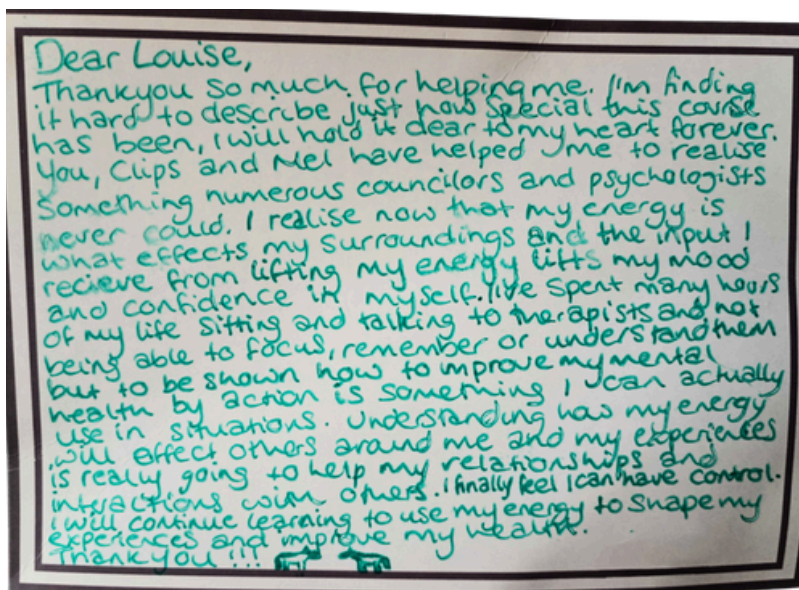 Dear Louise,
Thankyou so much for helping me. I'm finding
it hard to describe just how special this course
has been, I will hold it dear to my heart forever.
You, Clips and Mel have helped me to realise
something numerous councilors and psychologists
never could. I realise now that my energy is
what effects my surroundings and the input I
recieve from lifting my energy lifts my mood
and confidence in myself. I've spent many hours
of my life sitting and talking to therapists and not
being able to focus, remember or understand them
but to be shown how to improve my mental
health by action is something I can actually
use in situations. Understanding how my energy
will effect others around me and my experiences
is really going to help my relationships and
intractions with others. I finally feel I can have control.
I will continue learning to use my energy to shape my
experiences and improve my health.
Thankyou !!!